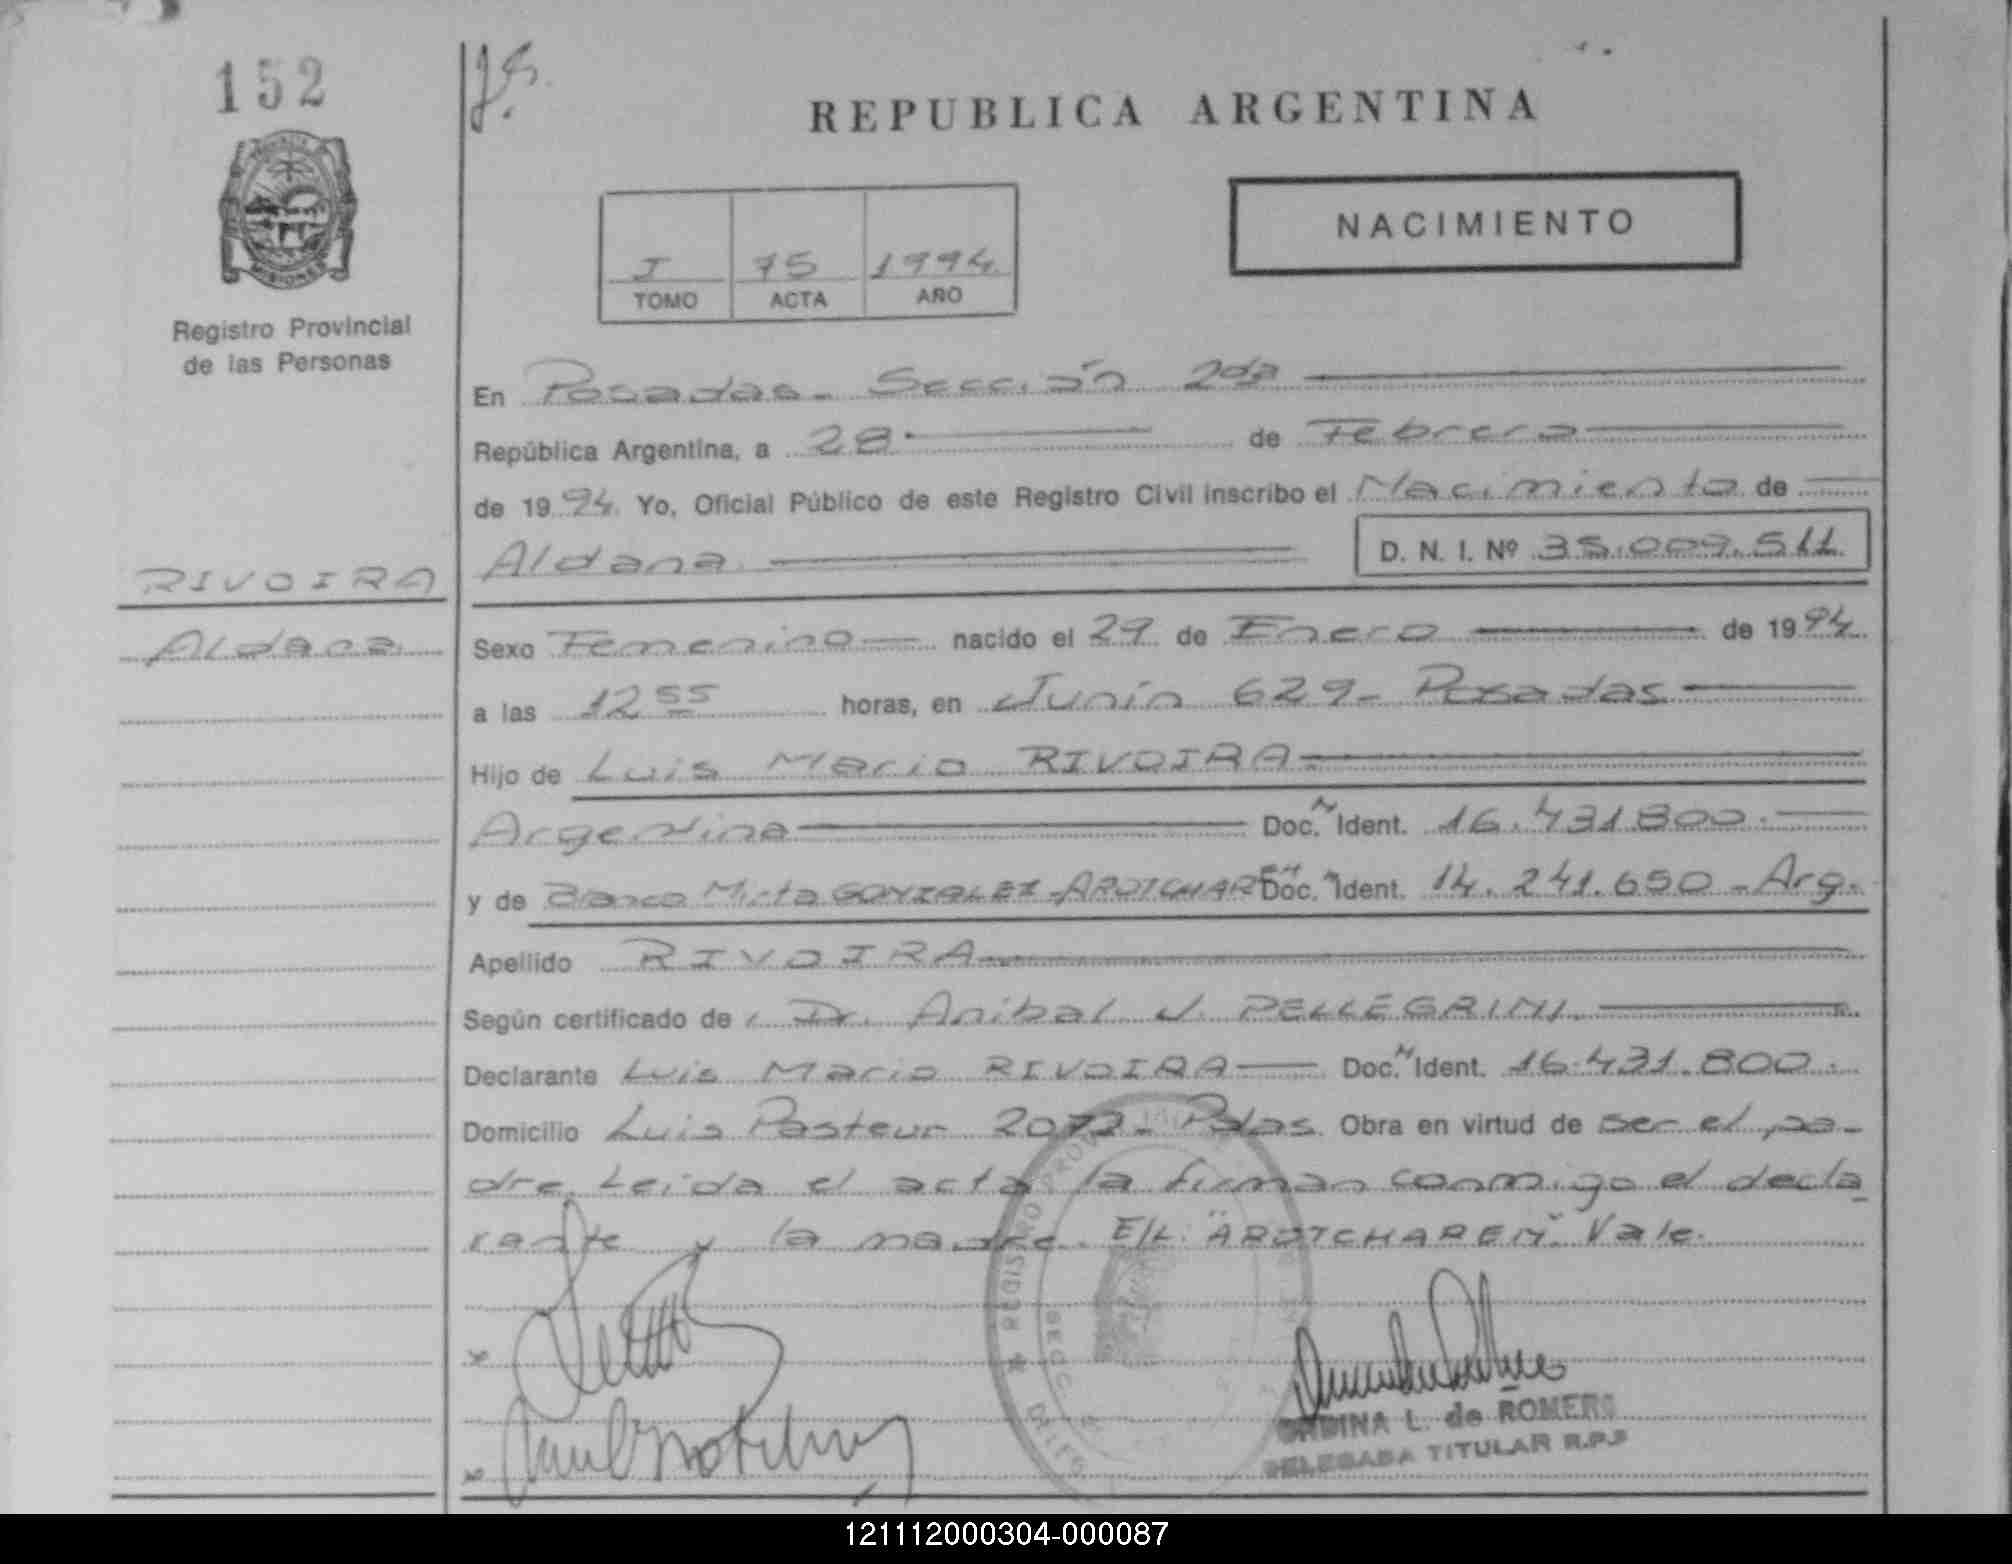 152
J.G.
REPUBLICA ARGENTINA
NACIMIENTO
I 75 1994
TOMO ACTA AÑO
MISIONES
Registro Provincial
de las Personas
En Posadas - Sección 2da
República Argentina, a 28 de Febrero
de 1994. Yo, Oficial Público de este Registro Civil inscribo el Nacimiento de
Aldana D. N. I. Nº 35.009.511
RIVOIRA
Aldana
Sexo Femenino nacido el 29 de Enero de 1994
a las 12 55 horas, en Junín 629 - Posadas
Hijo de Luis Mario RIVOIRA
Argentina Doc. N. Ident. 16.431.800.
y de Mirta GONZALEZ - AROTCHAREN Doc. N Ident. 14.241.650 - Arg.
Apellido RIVOIRA
Según certificado de Dr. Anibal J. PELLEGRINI.
Declarante Luis Mario RIVOIRA Doc. N Ident. 16.431.800.
Domicilio Luis Pasteur 2072 - Pdas. Obra en virtud de ser el pa-
dre. Leida el acta la firman conmigo el decla-
rante y la madre. E/L: "AROTCHAREN" Vale.
REGISTRO
SECC.
ONDINA L. de ROMERO
DELEGADA TITULAR R.P.P
121112000304-000087